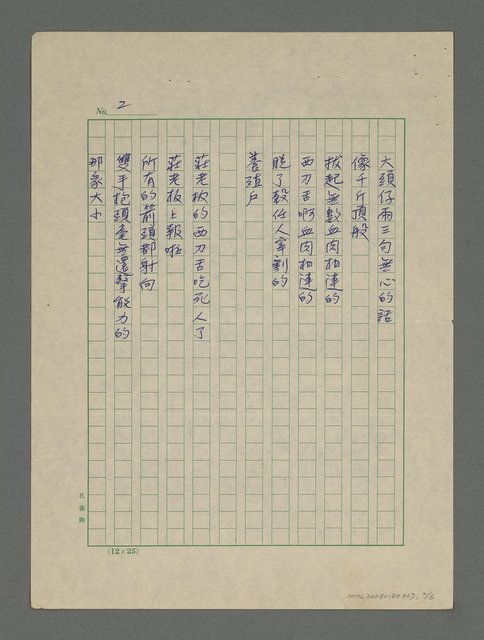 No. 2
大頭仔兩三句無心的話
像千斤頂般
拔起無數血肉相連的
西刀舌啊血肉相連的
脫了殼任人宰割的
養殖戶
莊老板的西刀舌吃死人了
莊老板上報啦
所有的箭頭都射向
雙手抱頭毫無還擊能力的
那家大小
孔雀牌
(12×25)